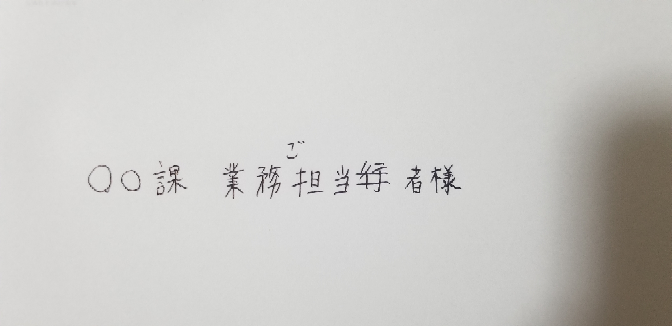 ご
〇〇課 業務担当者様